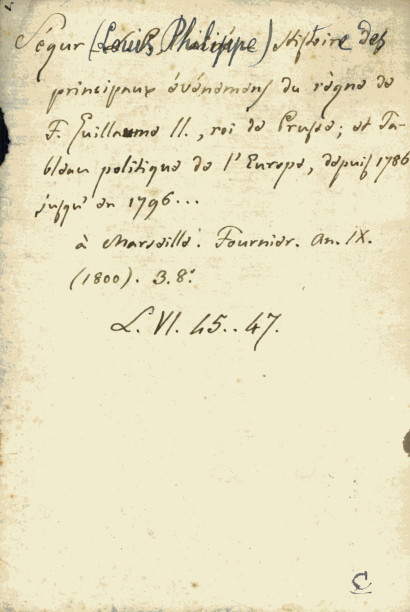 Ségur (Louis Philippe) Histoire des
principaux événemens du règne de
F. Guillaume II., roi de Prusse; et Ta-
bleau politique de l'Europe, depuis 1786
jusqu'en 1796...
à Marseille. Fournier. An. IX.
(1800). 3. 8.
L. VI. 45.. 47.
C